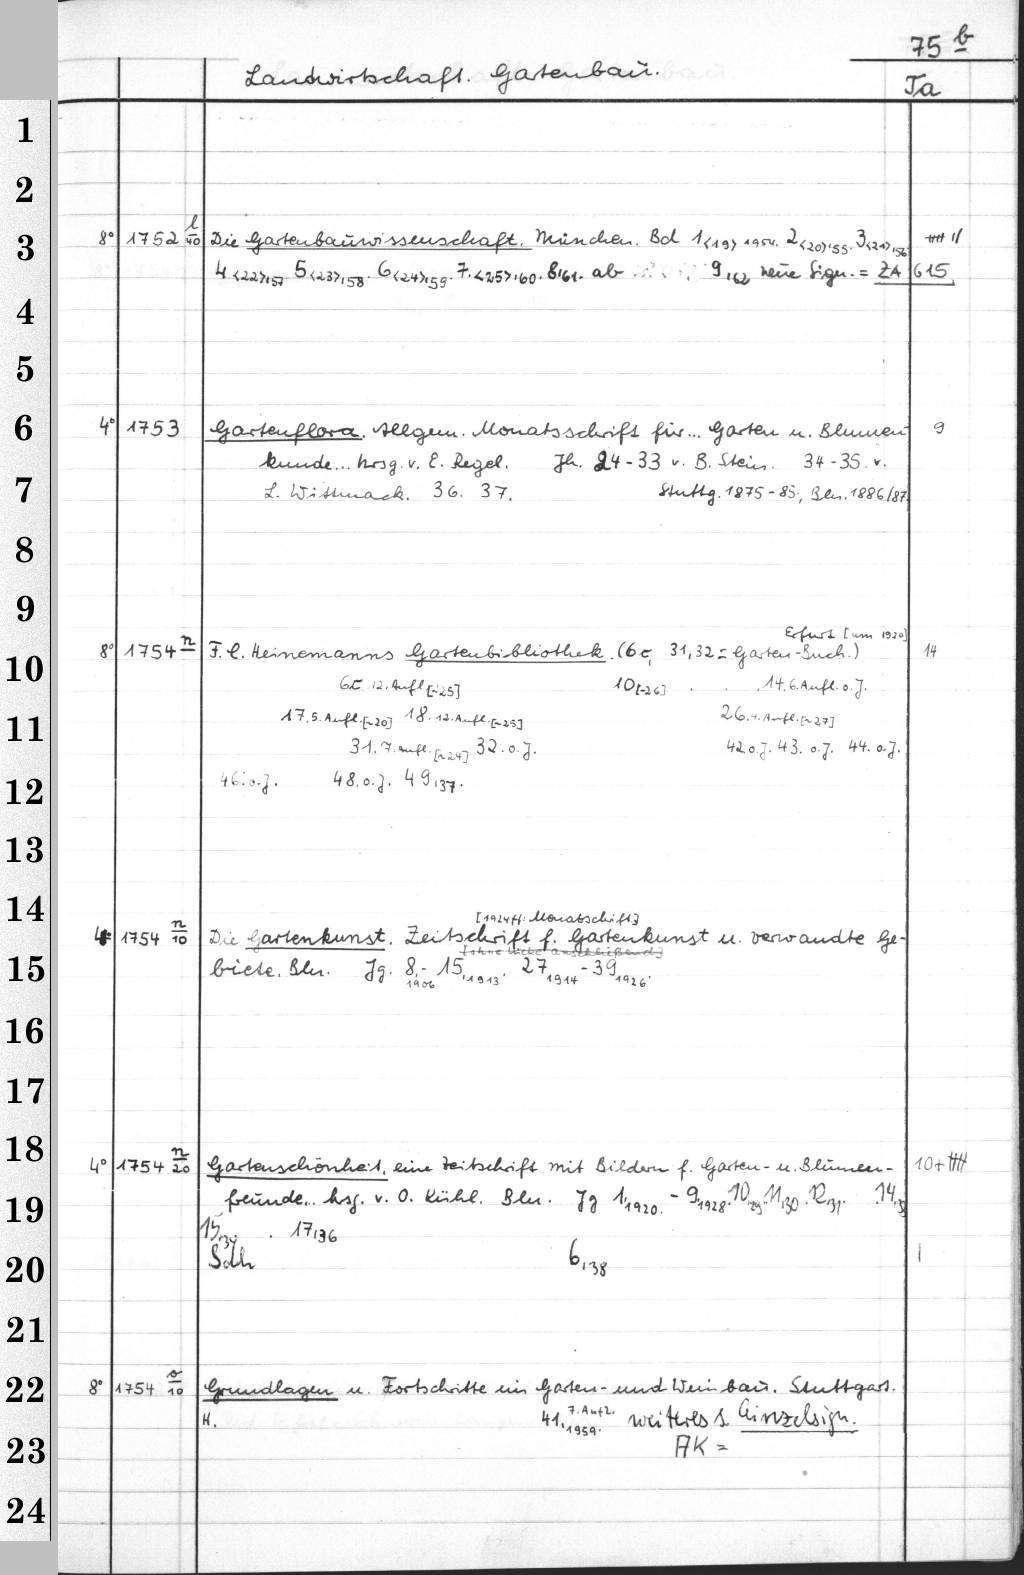 75 b
Landwirtschaft. Gartenbau.
Ta
1
2
3
8° 1752 l/40 Die Gartenbauwissenschaft. München. Bd 1<19> 1954. 2<20>,55. 3<21>,56 |||| ||
4<22>,57 5<23>,58. 6<24>,59. 7.<25>,60. 8,61. ab 9,62 neue Sign. = ZA 615
4
5
6
4° 1753 Gartenflora. Allgem. Monatsschrift für... Garten u. Blumen 9
kunde... hrsg. v. E. Regel. Jh. 24-33 v. B. Stein. 34-35. v.
7
L. Wittmack. 36. 37. Stuttg. 1875-85, Bln. 1886/87
8
9
Erfurt [um 1920]
10
8° 1754 n F. C. Heinemanns Gartenbibliothek. (6c, 31,32 = Garten-Buch.) 14
6c 12. Aufl [~25] 10[~26] . . . 14,6. Aufl. o. J.
11
17,5. Aufl. [~20] 18. 12. Aufl. [~25] 26. 4. Aufl. [~27]
31, 7. Aufl. [~24] 32. o. J. 42 o. J. 43. o. J. 44. o. J.
12
46. o. J. 48. o. J. 49,37.
13
14
[1924ff: Monatschift]
4° 1754 n/10 Die Gartenkunst. Zeitschrift f. Gartenkunst u. verwandte Ge-
15
biete. Bln. Jg. 8,1906 - 15,1913. 27,1914 - 39,1926.
16
17
18
4° 1754 n/20 Gartenschönheit, eine Zeitschrift mit Bildern f. Garten- u. Blumen- 10+ ||||
19
freunde... hsg. v. O. Kühl. Bln. Jg 1,1920. - 9,1928. 10,29. 11,30. 12,31. 14,33
15,34 . 17,36
20
Sdh 6,38 |
21
22
8° 1754 o/10 Grundlagen u. Fortschritte im Garten- und Weinbau. Stuttgart.
H. 41, 7. Aufl. 1959. weiteres s. Einzelsign.
23
AK =
24